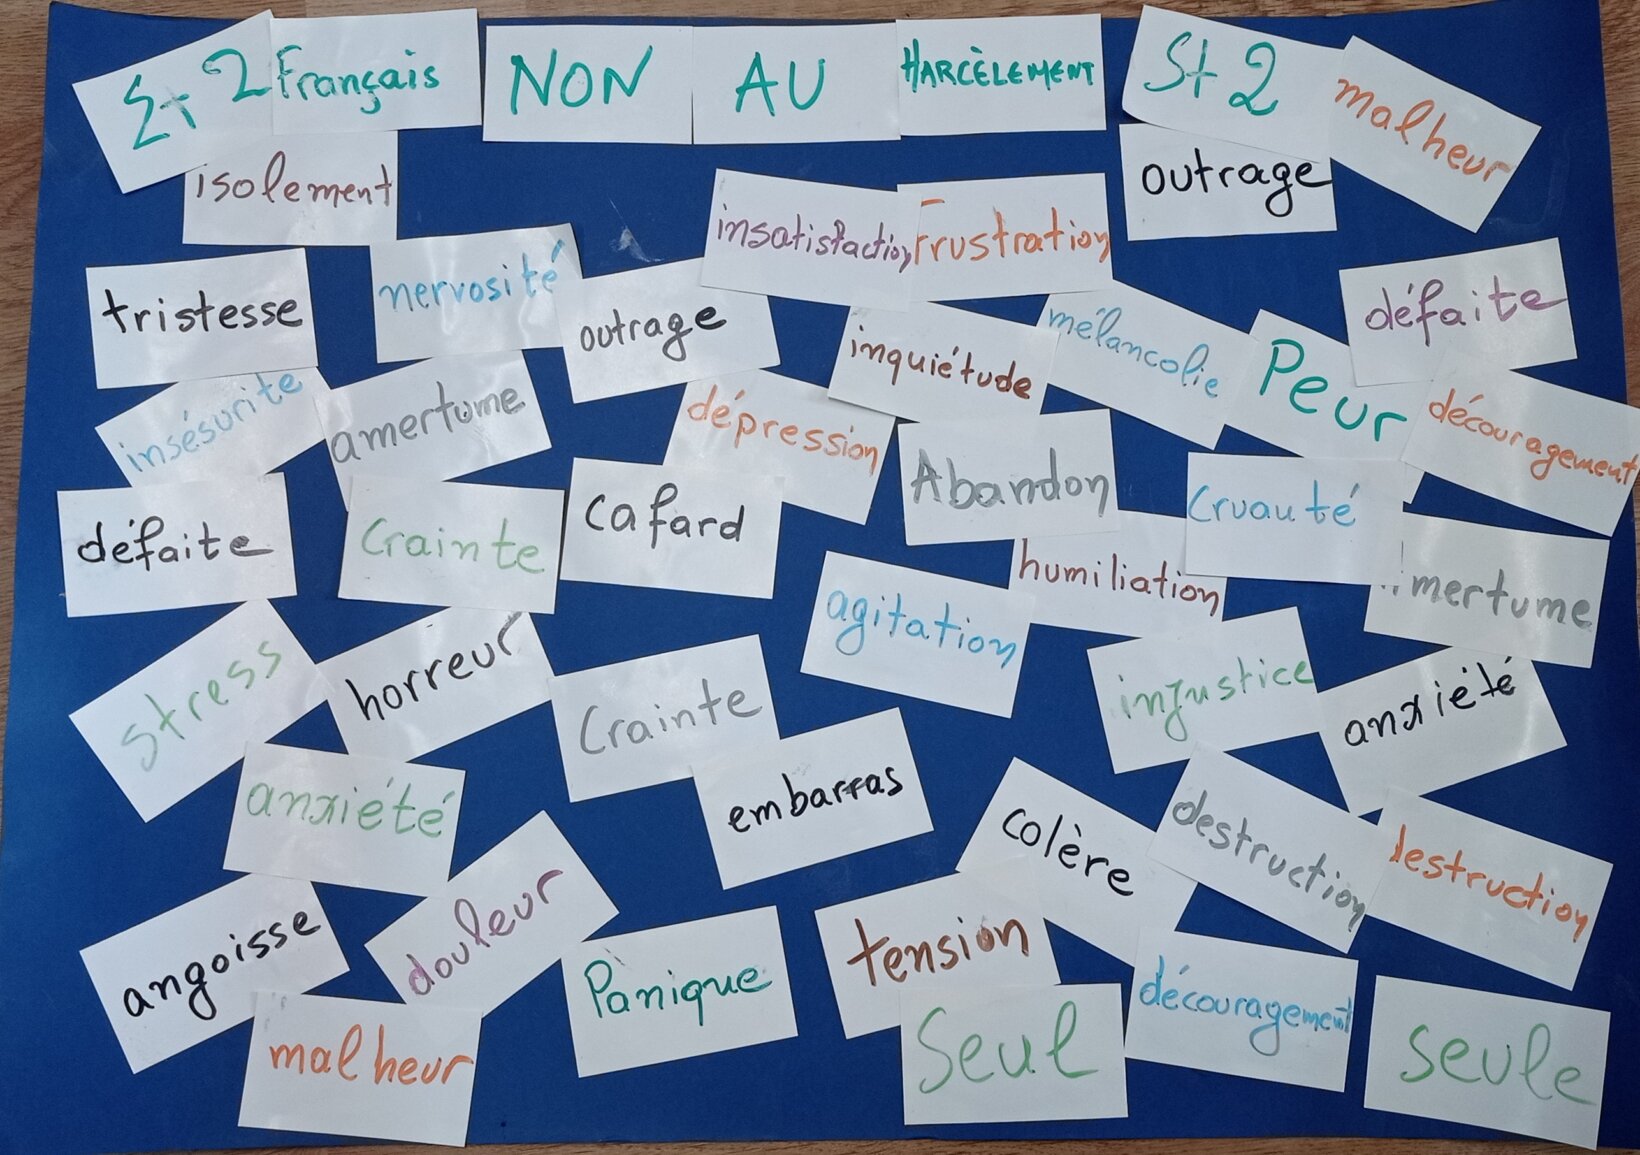 Στ 2 Français NON AU HARCÈLEMENT St 2
malheur
isolement
outrage
insatisfaction
Frustration
tristesse
nervosité
outrage
inquiétude
mélancolie
Peur
défaite
insésurité
amertume
dépression
Abandon
Cruauté
découragement
défaite
Crainte
cafard
humiliation
mertume
agitation
stress
horreur
Crainte
injustice
anxiété
anxiété
embarras
colère
destruction
destruction
angoisse
douleur
Panique
tension
découragement
malheur
Seul
seule